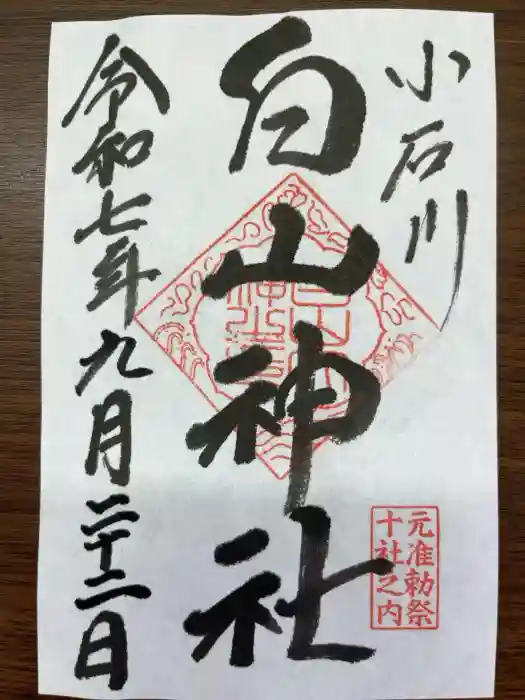 小石川
白山神社
令和七年九月二十二日
元准勅祭
十社之内